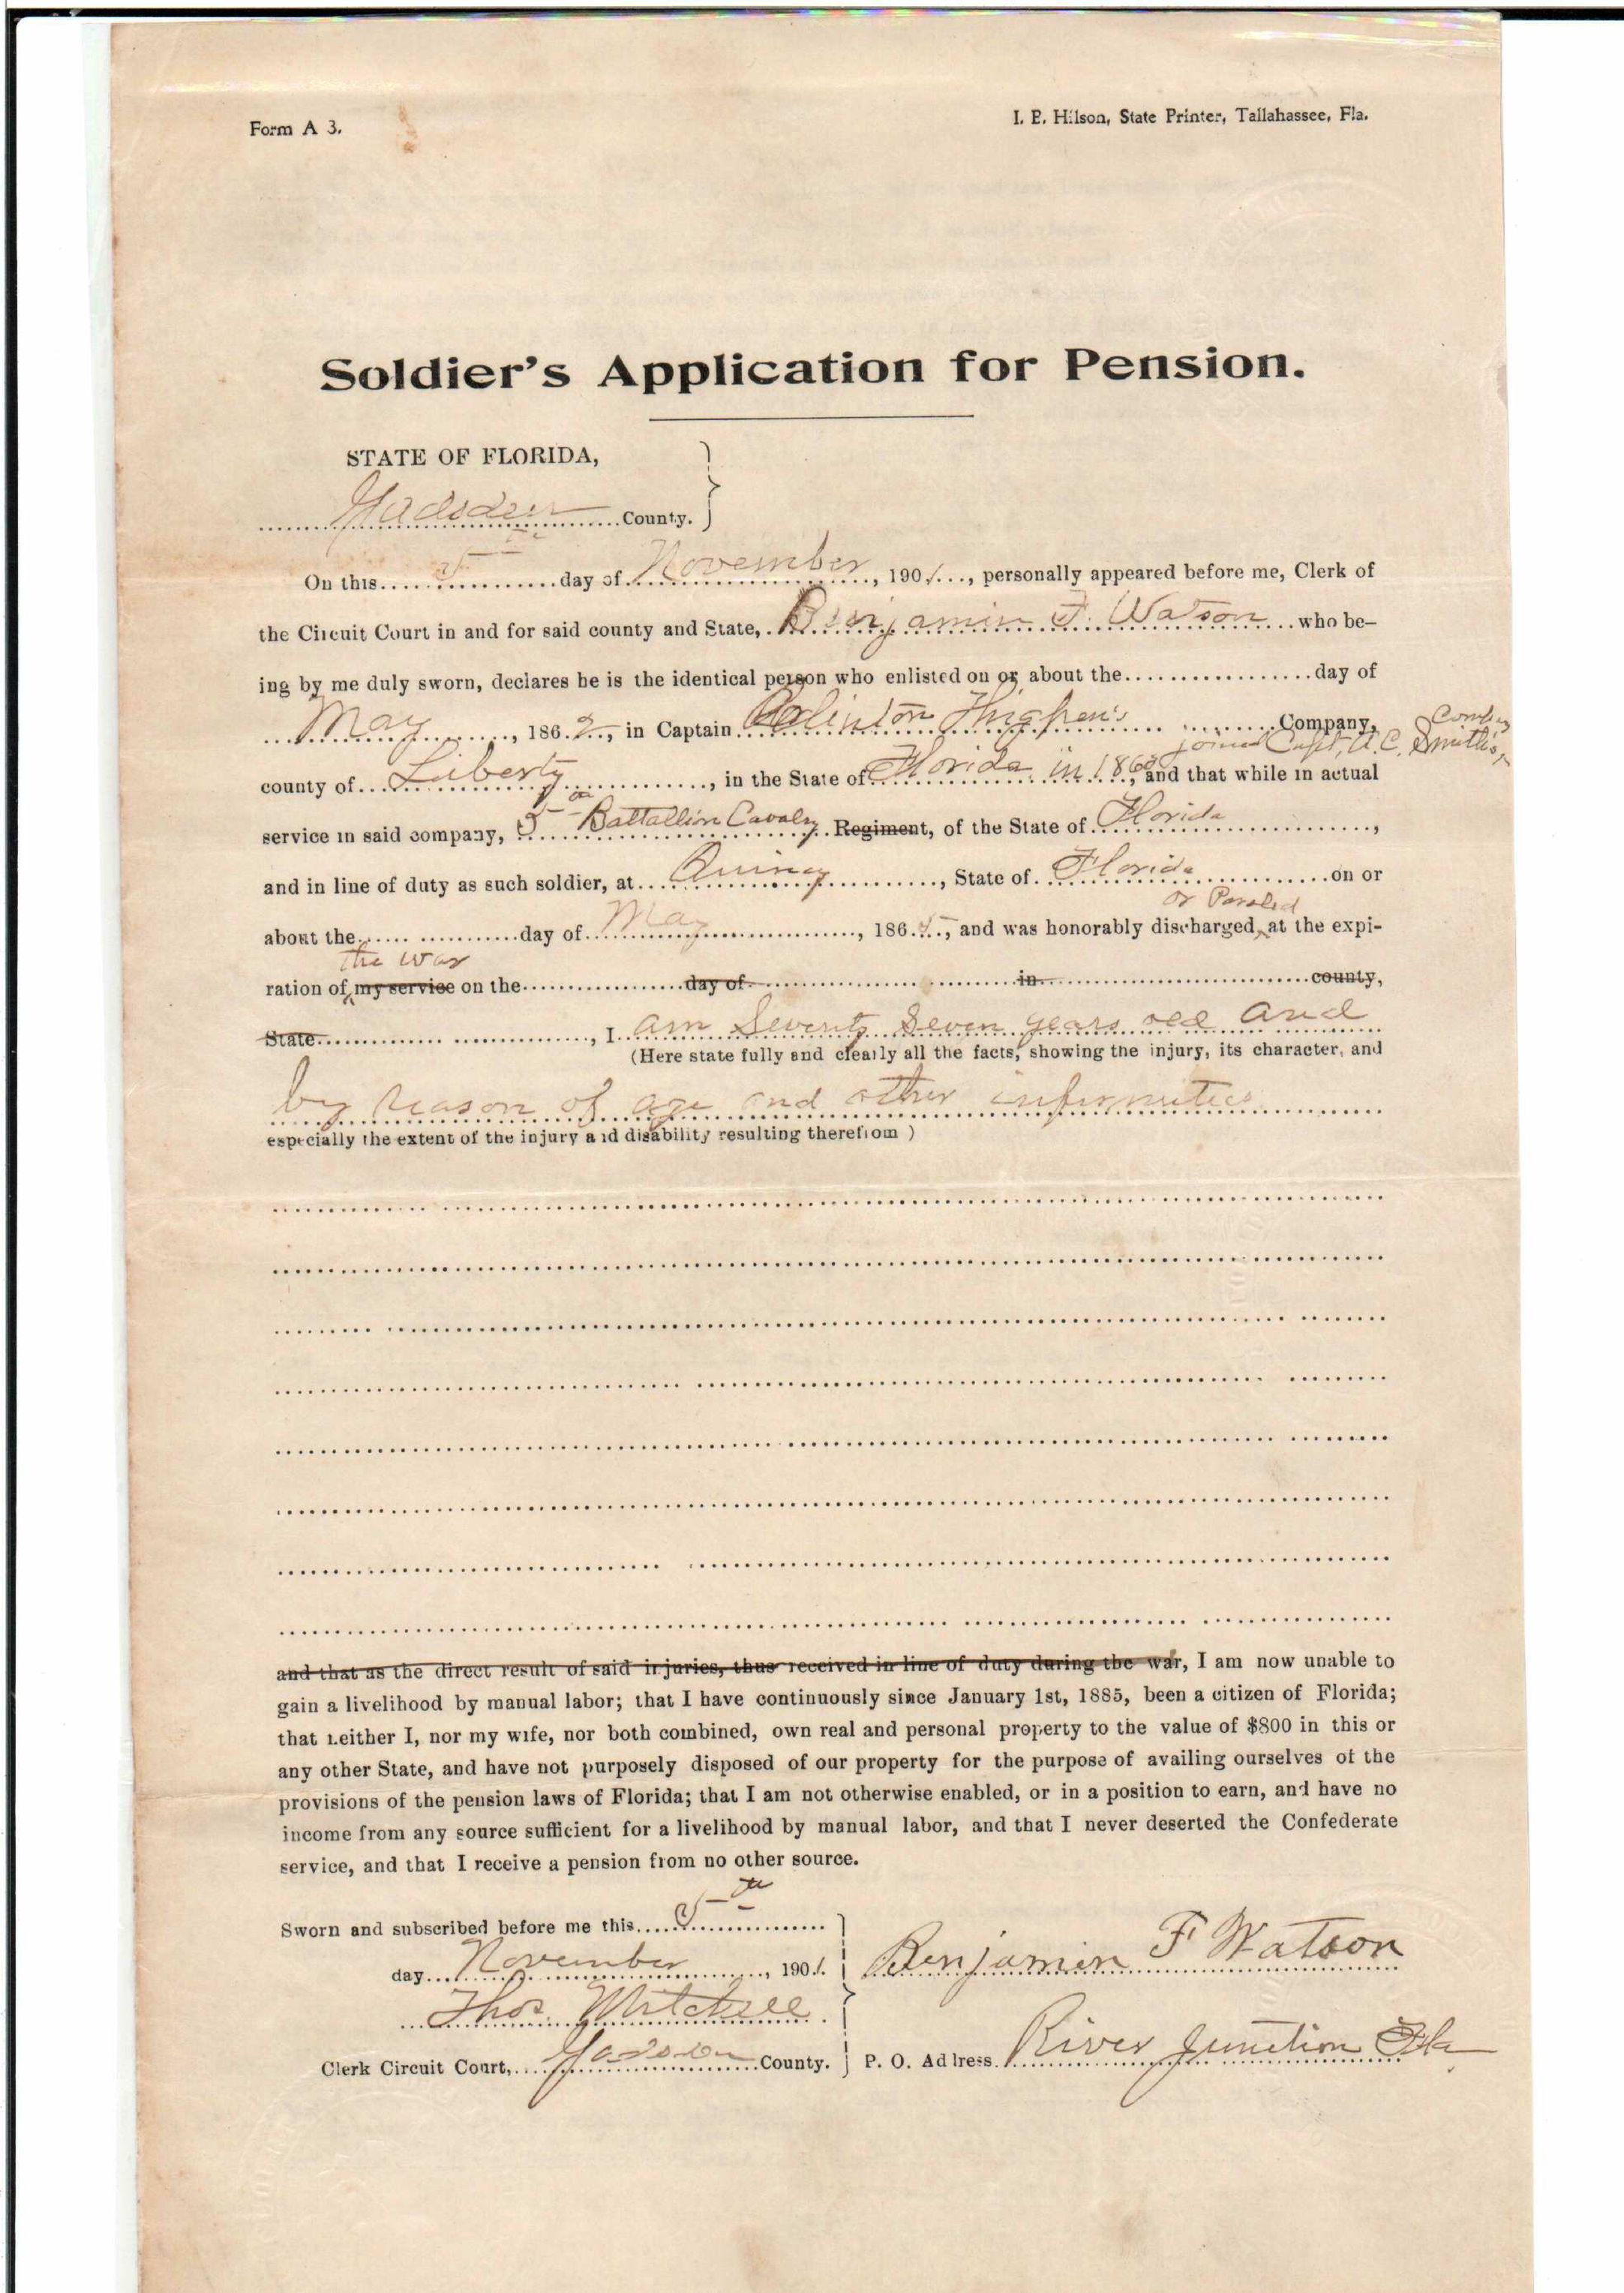 Form A 3.
I. B. Hilson, State Printer, Tallahassee, Fla.
Soldier's Application for Pension.
STATE OF FLORIDA,
Gadsden County.
On this 5th day of November, 1901, personally appeared before me, Clerk of
the Circuit Court in and for said county and State, Benjamin F. Watson who be-
ing by me duly sworn, declares he is the identical person who enlisted on or about the day of
May, 1862, in Captain Clinton Thigpen's Company,
joined Capt, A. C. Smith's
county of Liberty, in the State of Florida in 186, and that while in actual
service in said company, 5th Battallion Cavalry Regiment, of the State of Florida,
and in line of duty as such soldier, at Quincy, State of Florida on or
or Paroled
about the day of May, 1865, and was honorably discharged, at the expi-
the war
ration of my service on the day of in county,
State, I am Seventy Seven years old and
(Here state fully and clearly all the facts, showing the injury, its character, and
by reason of age and other infirmities
especially the extent of the injury and disability resulting therefrom )
and that as the direct result of said injuries, thus received in line of duty during the war, I am now unable to
gain a livelihood by manual labor; that I have continuously since January 1st, 1885, been a citizen of Florida;
that neither I, nor my wife, nor both combined, own real and personal property to the value of $800 in this or
any other State, and have not purposely disposed of our property for the purpose of availing ourselves of the
provisions of the pension laws of Florida; that I am not otherwise enabled, or in a position to earn, and have no
income from any source sufficient for a livelihood by manual labor, and that I never deserted the Confederate
service, and that I receive a pension from no other source.
Sworn and subscribed before me this 5th
day November, 1901.
Benjamin F Watson
Thos. Mitchell
Clerk Circuit Court, Gadsden County.
P. O. Address River Junction Fla